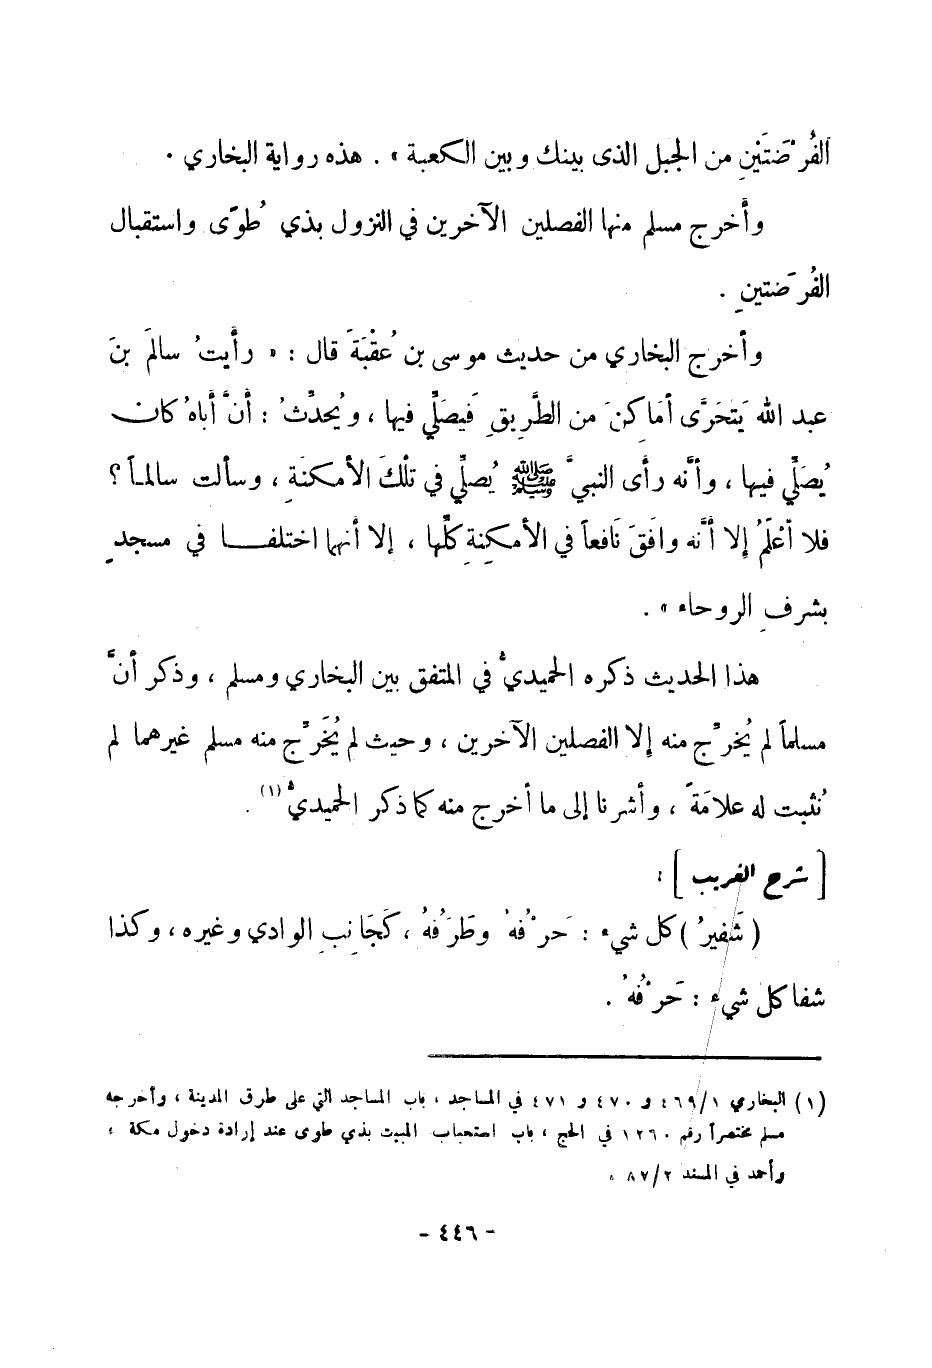 الفُرْضَتَيْنِ من الجبل الذى بينك وبين الكعبة » . هذه رواية البخاري .
وأخرج مسلم منها الفصلين الآخرين في النزول بذي طُوًى واستقبال
الفُرضَتينِ .
وأخرج البخاري من حديث موسى بن عُقْبَةَ قال : « رأيتُ سالمَ بنَ
عبد الله يَتحَرَّى أمَاكِنَ من الطَّرِيقِ فَيصَلِّي فيها ، ويُحدِّثُ : أنَّ أباهُ كان
يُصَلِّي فيها ، وأنَّه رأى النبيَّ ﷺ يُصلِّي في تلْكَ الأمكنَةِ ، وسألت سالماً ؟
فلا أعْلَمُ إلا أنَّه وافَقَ نَافعاً في الأمكِنةِ كلِّها ، إلا أنهما اختلفا في مسجدٍ
بشرفِ الروحاء » .
هذا الحديث ذكره الحميديُّ في المتفق بين البخاري ومسلم ، وذكر أنَّ
مسلماً لم يُخرِّج منه إلا الفصلين الآخرين ، وحيث لم يُخَرِّج منه مسلم غيرهما لم
نُثبت له علامَةً ، وأشرنا إلى ما أخرج منه كما ذكر الحميديُّ (١) .
[ شرح الغريب ] :
( شَفيرُ ) كل شيء : حَرْفُهُ وطَرَفُهُ ، كَجَانِبِ الوادي وغيره ، وكذا
شفا كل شيء : حَرْفُهُ .
(١) البخاري ٤٦٩/١ و ٤٧٠ و ٤٧١ في المساجد ، باب المساجد التي على طرق المدينة ، وأخرجه
مسلم مختصراً رقم ١٢٦٠ في الحج ، باب استحباب المبيت بذي طوى عند إرادة دخول مكة ،
وأحمد في المسند ٨٧/٢ .
- ٤٤٦ -